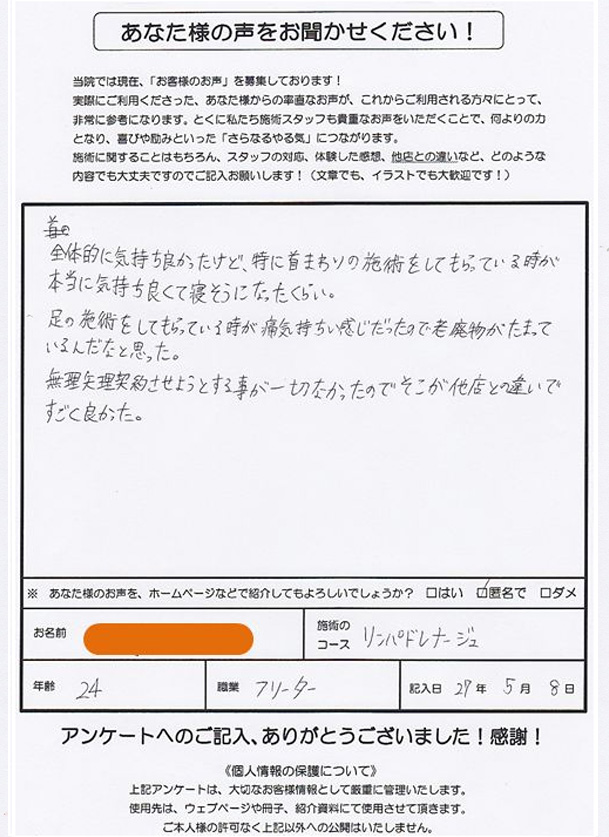 あなた様の声をお聞かせください！
当院では現在、「お客様のお声」を募集しております！
実際にご利用くださった、あなた様からの率直なお声が、これからご利用される方々にとって、
非常に参考になります。とくに私たち施術スタッフも貴重なお声をいただくことで、何よりの力
となり、喜びや励みといった「さらなるやる気」につながります。
施術に関することはもちろん、スタッフの対応、体験した感想、他店との違いなど、どのような
内容でも大丈夫ですのでご記入お願いします！（文章でも、イラストでも大歓迎です！）
全体的に気持ち良かったけど、特に首まわりの施術をしてもらっている時が
本当に気持ち良くて寝そうになったくらい。
足の施術をしてもらっている時が痛気持ちい感じだったので老廃物がたまって
いるんだなと思った。
無理矢理契約させようとする事が一切なかったのでそこが他店との違いで
すごく良かった。
※ あなた様のお声を、ホームページなどで紹介してもよろしいでしょうか？ □はい □匿名で □ダメ
お名前
施術の
コース リンパドレナージュ
年齢 24 職業 フリーター 記入日 27年 5月 8日
アンケートへのご記入、ありがとうございました！感謝！
《個人情報の保護について》
上記アンケートは、大切なお客様情報として厳重に管理いたします。
使用先は、ウェブページや冊子、紹介資料にて使用させて頂きます。
ご本人様の許可なく上記以外への公開はいたしません。